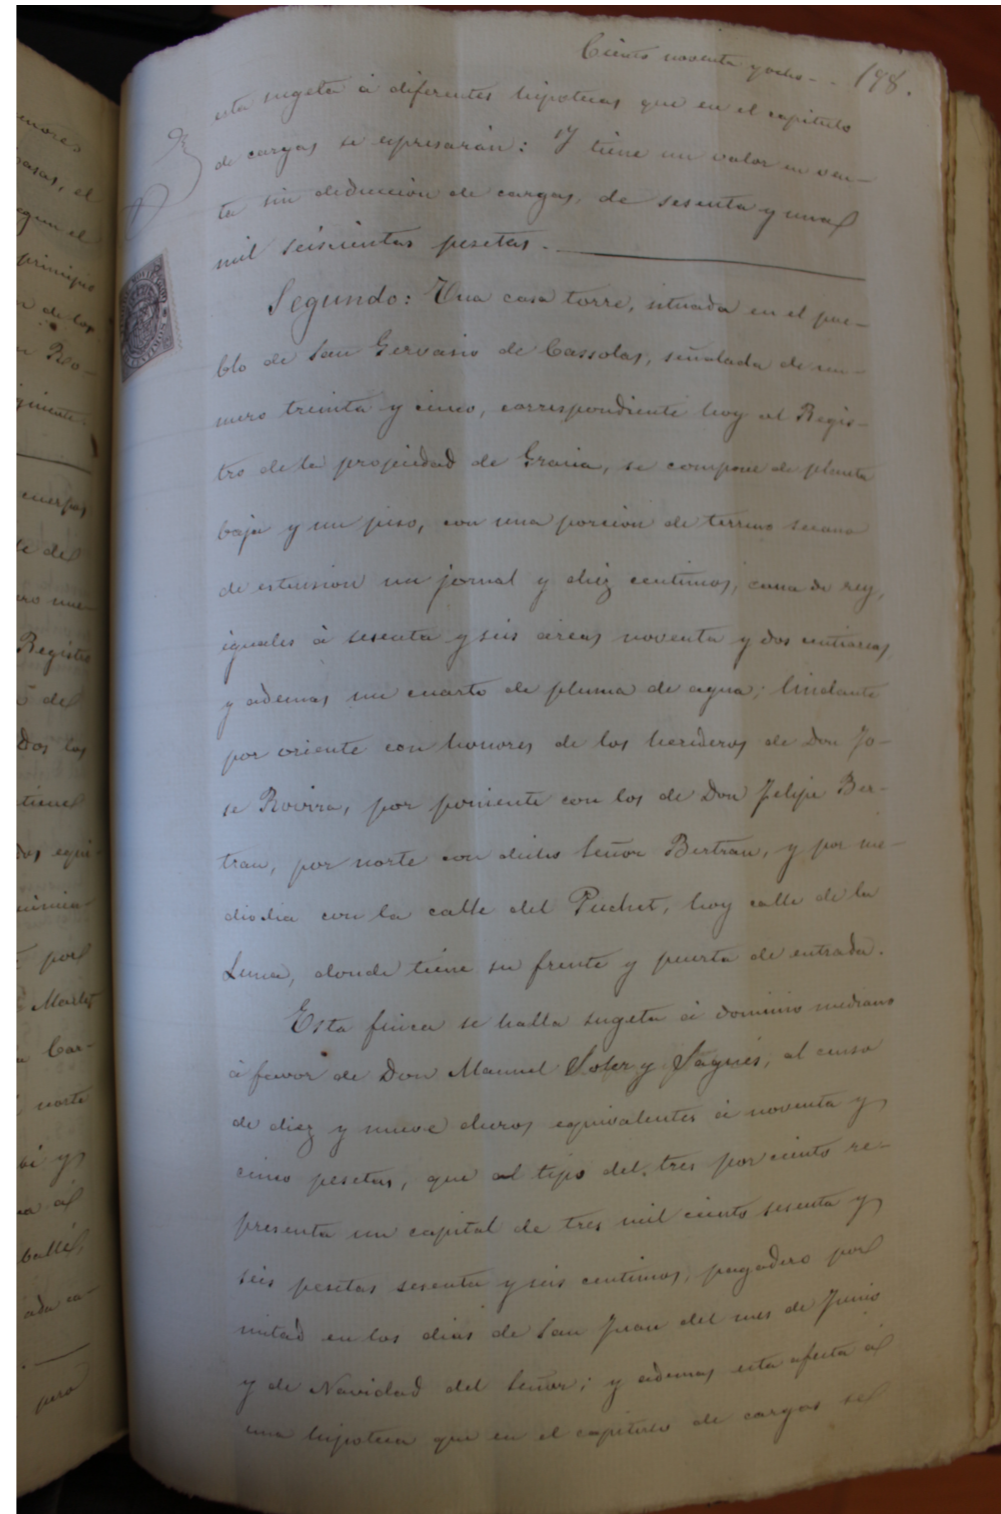 Ciento noventa y ocho -- 198.
esta sugeta á diferentes hipotecas que en el capitulo
de cargas se espresarán: Y tiene un valor en ven-
ta sin deduccion de cargas, de sesenta y una
mil seiscientas pesetas.
Segundo: Una casa torre, situada en el pue-
blo de San Gervasio de Cassolas, señalada de nu-
mero treinta y cinco, correspondiente hoy al Regis-
tro de la propiedad de Gracia, se compone de planta
baja y un piso, con una porcion de terreno secano
de estension un jornal y diez centimos, cana de rey,
iguales á sesenta y seis areas noventa y dos centiareas,
y ademas un cuarto de pluma de agua; lindante
por oriente con honores de los herederos de Don Jo-
se Rovira, por poniente con los de Don Felipe Ber-
tran, por norte con dicho Señor Bertran, y por me-
diodia con la calle del Puchet, hoy calle de la
Luna, donde tiene su frente y puerta de entrada.
Esta finca se halla sugeta á dominio mediano
á favor de Don Manuel Soler y Sagnés, al censo
de diez y nueve duros equivalentes á noventa y
cinco pesetas, que al tipo del tres por ciento re-
presenta un capital de tres mil ciento sesenta y
seis pesetas sesenta y seis centimos, pagadero por
mitad en los dias de San Juan del mes de Junio
y de Navidad del Señor; y ademas esta afecta á
una hipoteca que en el capitulo de cargas se